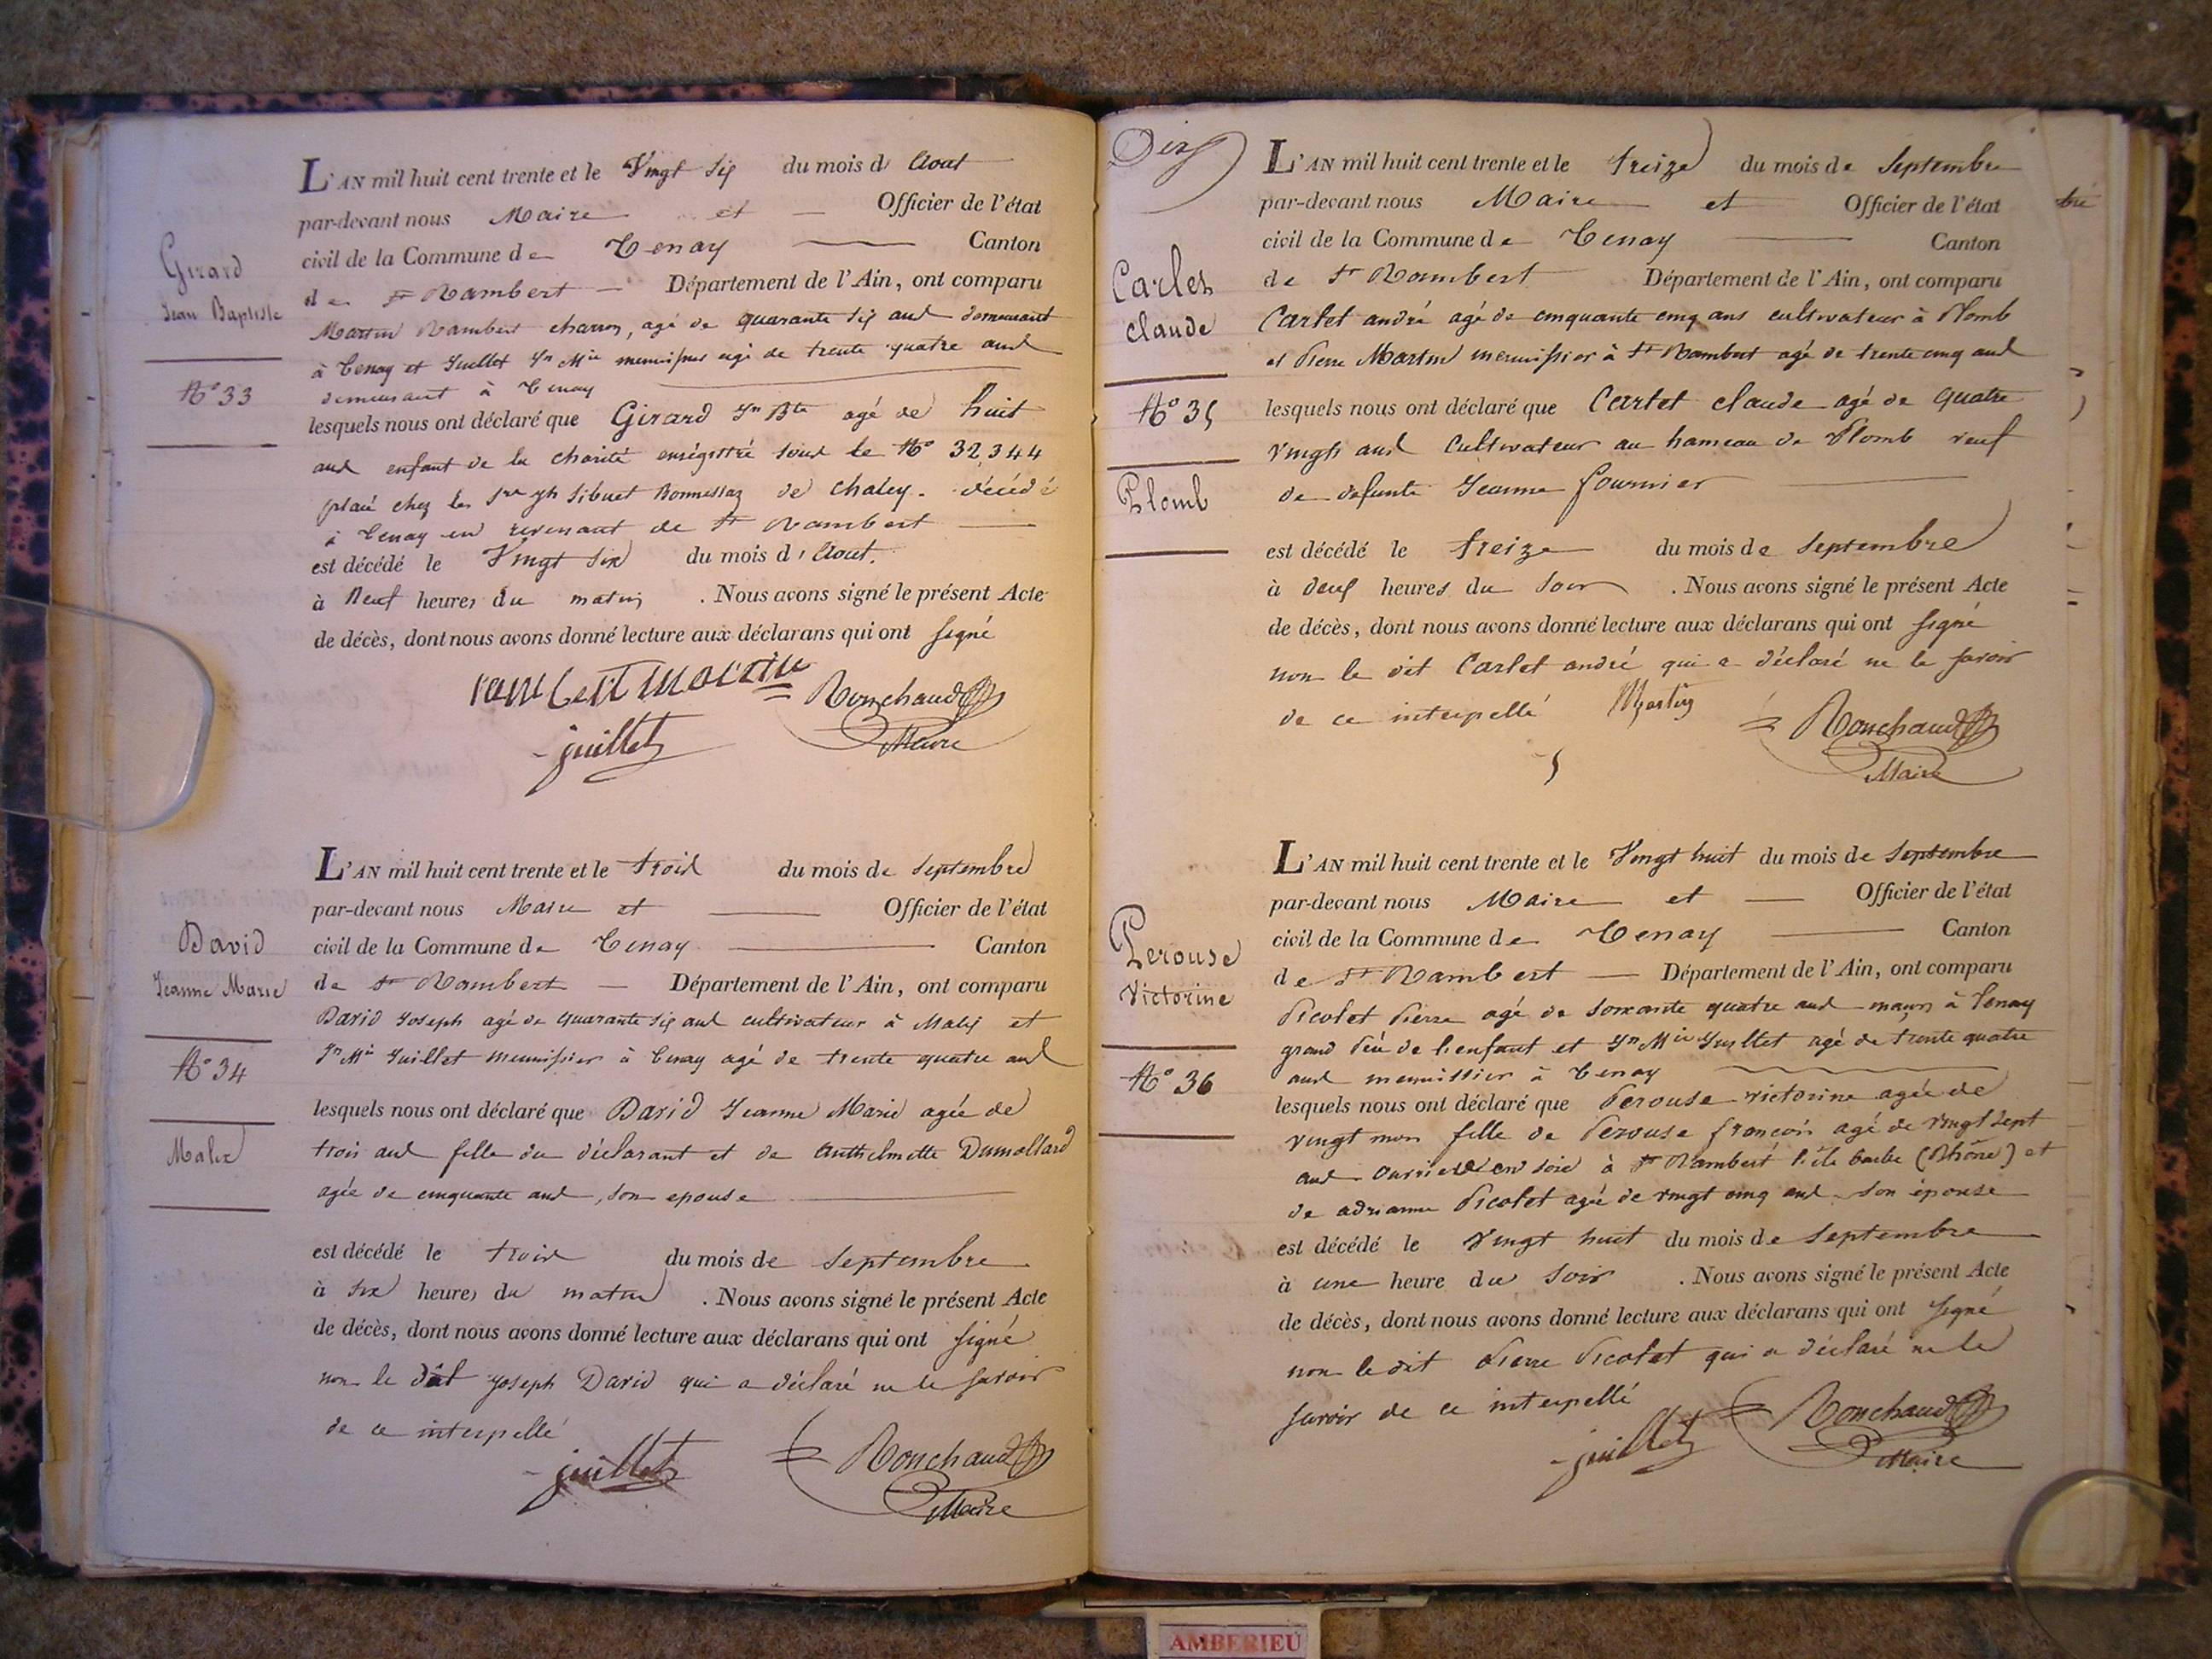 Girard
Jean Baptiste
N° 33
L'AN mil huit cent trente et le Vingt six du mois d'Aout
par-devant nous Maire et — Officier de l'état
civil de la Commune de Tenay — Canton
de St Rambert — Département de l'Ain, ont comparu
Martin Rambert charron, agé de quarante six ans demeurant
à Tenay et Juillet Jn Mie menuisier agé de trente quatre ans
demeurant à Tenay
lesquels nous ont déclaré que Girard Jn Bte agé de huit
ans enfant de la charité enrégistré sous le N° 32,344
placé chez les Sibuet Bonnessaz de Chaley. décédé
à Tenay en revenant de St Rambert
est décédé le Vingt six du mois d'Aout.
à Neuf heures du matin . Nous avons signé le présent Acte
de décès, dont nous avons donné lecture aux déclarans qui ont signé
rambert martin Ronchaud
juillet Maire
David
Jeanne Marie
N° 34
Malix
L'AN mil huit cent trente et le trois du mois de septembre
par-devant nous Maire et — Officier de l'état
civil de la Commune de Tenay — Canton
de St Rambert — Département de l'Ain, ont comparu
David Joseph agé de quarante six ans cultivateur à Malix et
Jn Mie Juillet menuisier à Tenay agé de trente quatre ans
lesquels nous ont déclaré que David Jeanne Marie agée de
trois ans fille du déclarant et de Anthelmette Dumollard
agée de cinquante ans, son epouse
est décédé le trois du mois de septembre
à six heures du matin . Nous avons signé le présent Acte
de décès, dont nous avons donné lecture aux déclarans qui ont signé
non le dit Joseph David qui a déclaré ne le savoir
de ce interpellé
juillet Ronchaud
Maire
Dix
Carlet
claude
N° 35
Plomb
L'AN mil huit cent trente et le treize du mois de Septembre
par-devant nous Maire et Officier de l'état
civil de la Commune de Tenay — Canton
de St Rambert Département de l'Ain, ont comparu
Cartet andré agé de cinquante cinq ans cultivateur à Plomb
et Pierre Martin menuissier à St Rambert agé de trente cinq ans
lesquels nous ont déclaré que Cartet claude agé de quatre
vingts ans Cultivateur au hameau de Plomb veuf
de defunte Jeanne fournier
est décédé le treize du mois de Septembre
à deux heures du soir . Nous avons signé le présent Acte
de décès, dont nous avons donné lecture aux déclarans qui ont signé
non le dit Cartet andré qui a déclaré ne le savoir
de ce interpellé Martin Ronchaud
Maire
Perouse
Victorine
N° 36
L'AN mil huit cent trente et le Vingt huit du mois de Septembre
par-devant nous Maire et — Officier de l'état
civil de la Commune de Tenay — Canton
de St Rambert — Département de l'Ain, ont comparu
Picolet Pierre agé de soixante quatre ans maçon à Tenay
grand Père de l'enfant et Jn Mie Juillet agé de trente quatre
ans menuissier à Tenay
lesquels nous ont déclaré que Perouse victorine agée de
vingt mois fille de Perouse françois agé de vingt sept
ans ouvrier en soie à St Rambert l'ile barbe (Rhône) et
de adrianne Picolet agée de vingt cinq ans son épouse
est décédé le Vingt huit du mois de Septembre
à une heure du soir . Nous avons signé le présent Acte
de décès, dont nous avons donné lecture aux déclarans qui ont signé
non le dit Pierre Picolet qui a déclaré ne le
savoir de ce interpellé
juillet Ronchaud
Maire
AMBERIEU